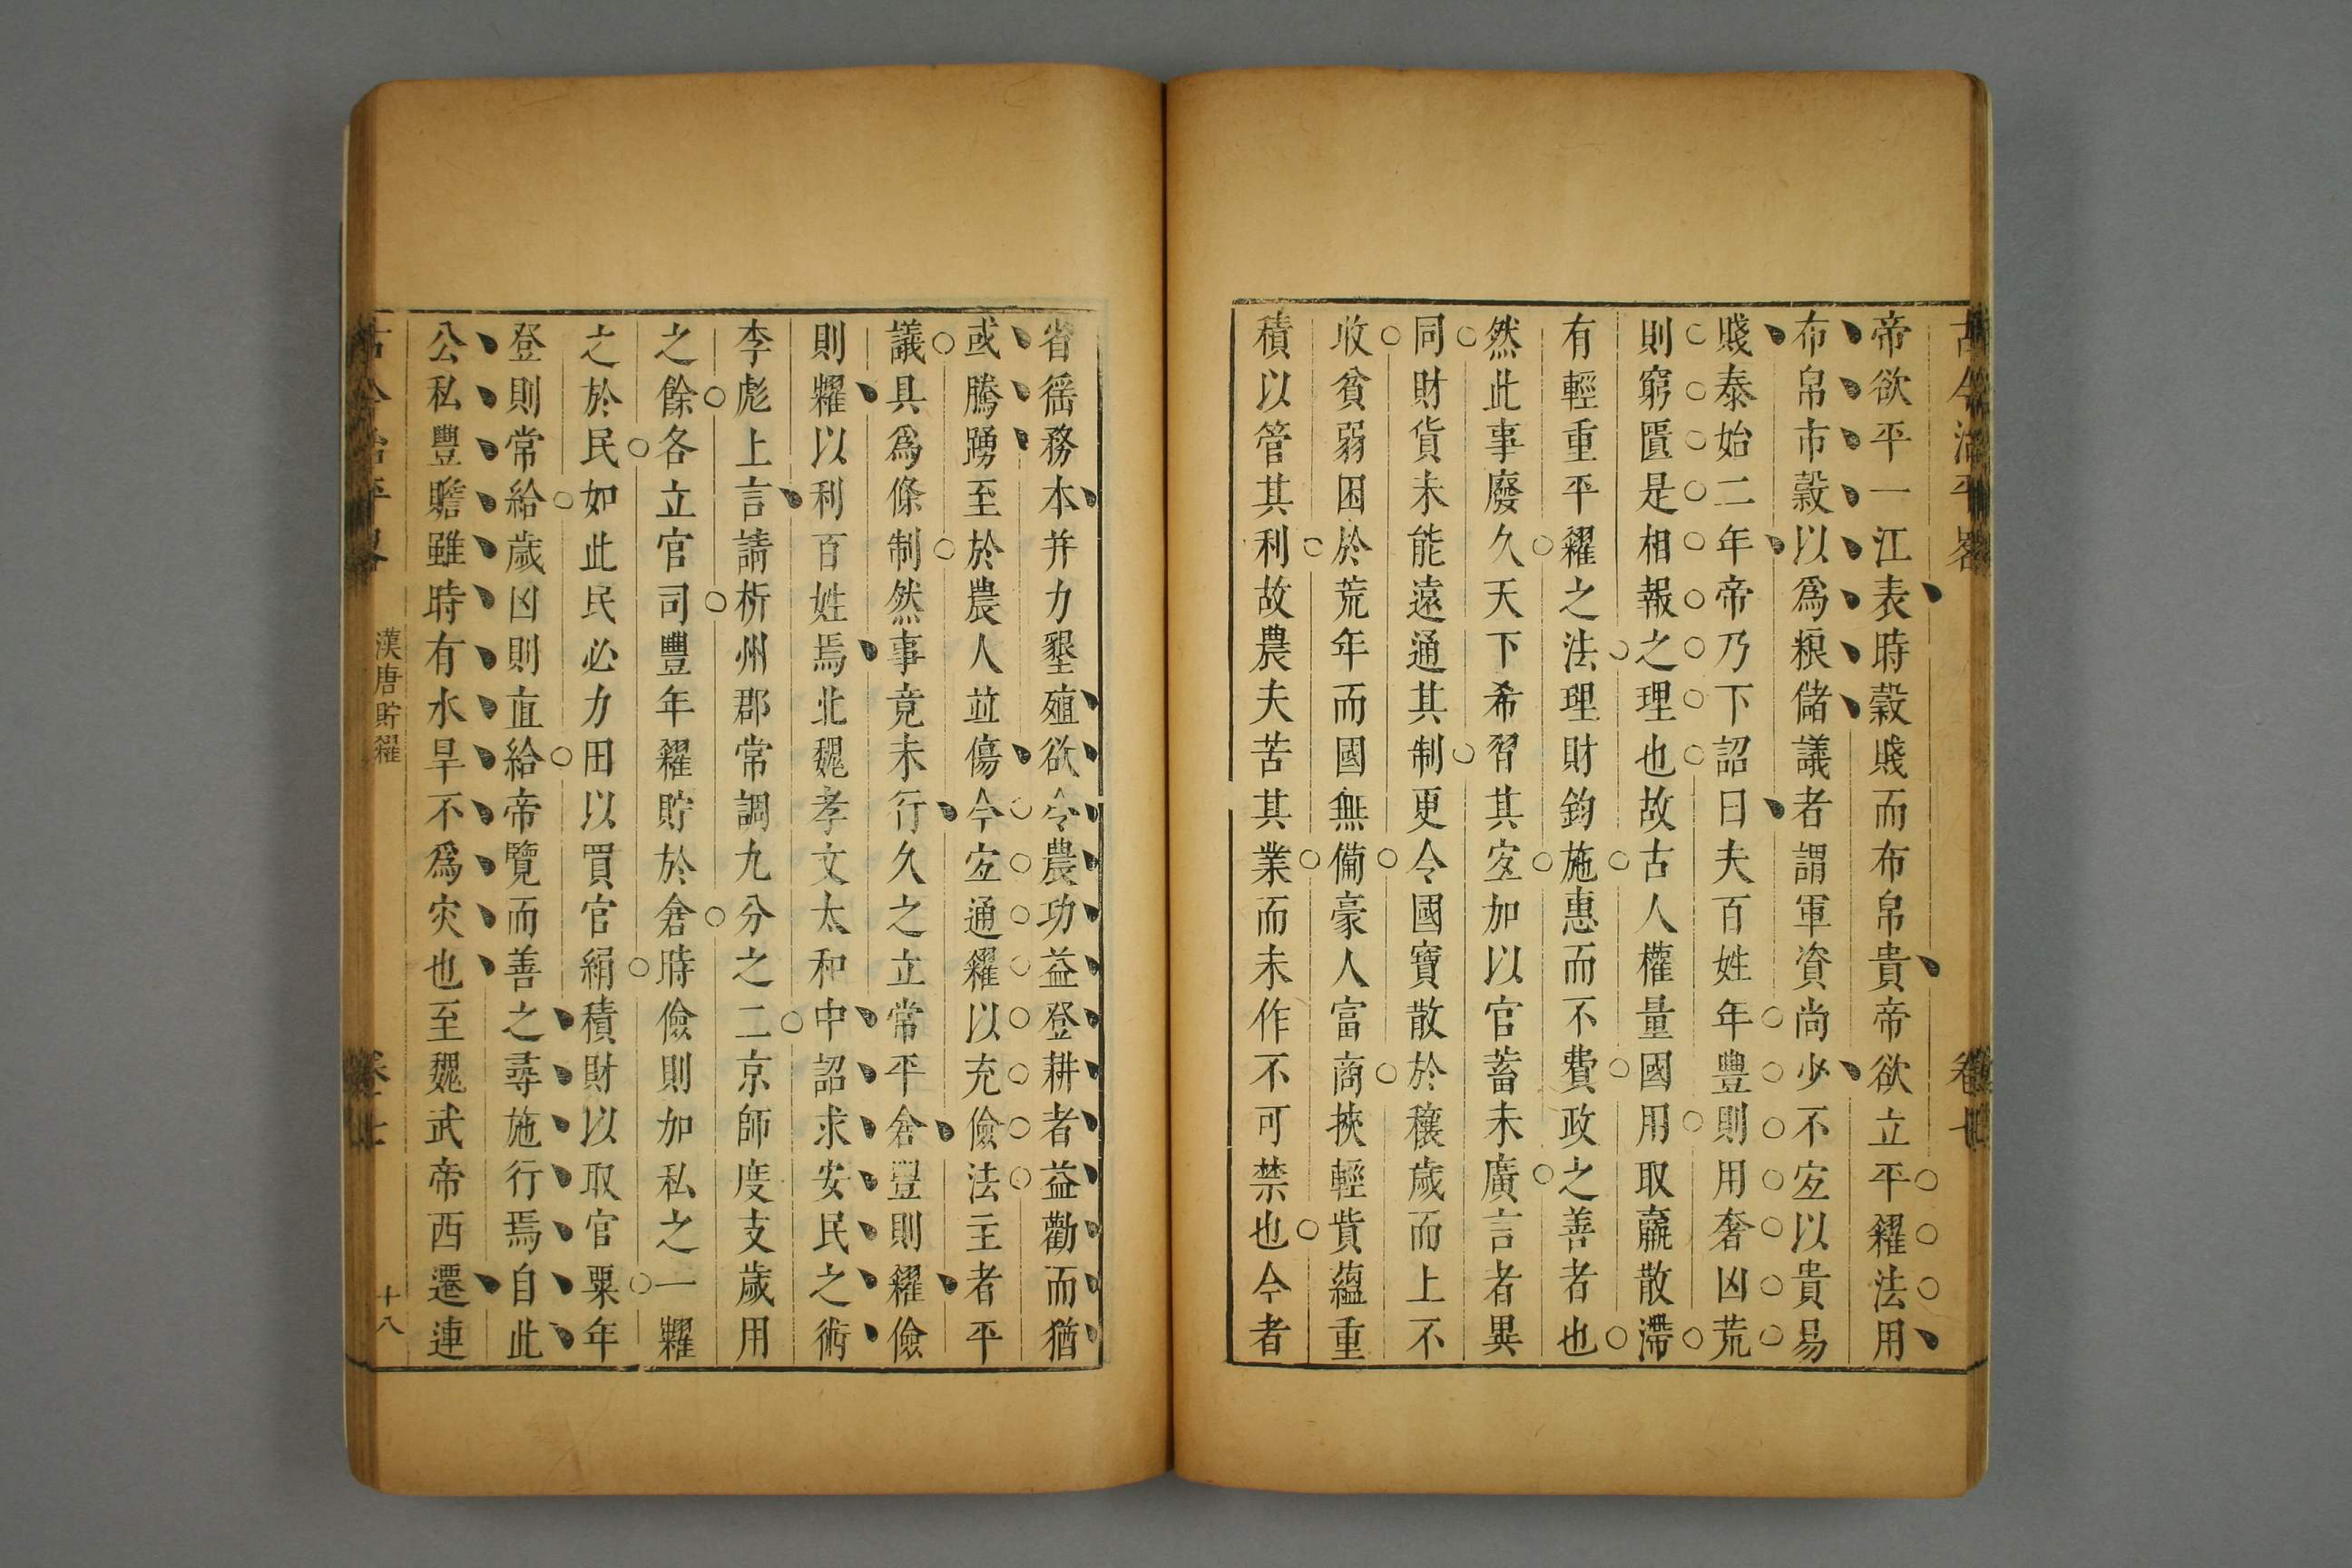 古今治平畧 卷七
帝欲平一江表時穀賤而布帛貴帝欲立平糴法用
布帛市穀以爲粮儲議者謂軍資尚少不宜以貴易
賤泰始二年帝乃下詔曰夫百姓年豐則用奢凶荒
則窮匱是相報之理也故古人權量國用取羸散滯
有輕重平糴之法理財鈞施惠而不費政之善者也
然此事廢久天下希習其宐加以官蓄未廣言者異
同財貨未能遠通其制更令國寶散於穰歲而上不
收貧弱困於荒年而國無備豪人富商挾輕貲蘊重
積以管其利故農夫苦其業而未作不可禁也今者
省徭務本并力墾殖欲令農功益登耕者益勸而猶
或騰踴至於農人並傷今宐通糴以充儉法主者平
議具爲條制然事竟未行久之立常平倉豐則糴儉
則糶以利百姓焉北魏孝文太和中詔求安民之術
李彪上言請析州郡常調九分之二京師度支歲用
之餘各立官司豐年糴貯於倉時儉則加私之一糶
之於民如此民必力田以買官絹積財以取官粟年
登則常給歲凶則直給帝覽而善之尋施行焉自此
公私豐贍雖時有水旱不爲灾也至魏武帝西遷連
古今治平畧 漢唐貯糴 卷七 十八